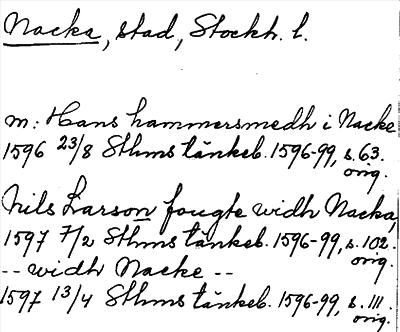 Nacka, stad, Stockh. l.
m: Hans hammersmedh i Nacke
1596 23/8 Sthms tänkeb. 1596-99, s. 63.
orig.
Nils Larson fougte widh Nacka,
1597 7/2 Sthms tänkeb. 1596-99, s. 102.
orig.
-- widh Nacke --
1597 13/4 Sthms tänkeb. 1596-99, s. 111.
orig.